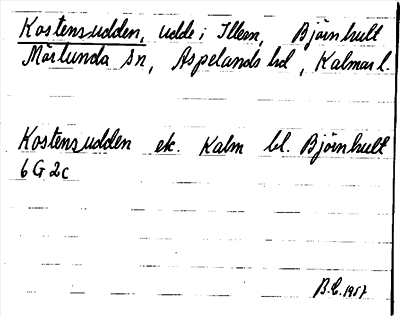 Kostensudden, udde i Illern, Björnhult
Mörlunda sn, Aspelands hd, Kalmar l.
Kostensudden ek. Kalm bl. Björnhult
6 G 2 c
B.E. 1957